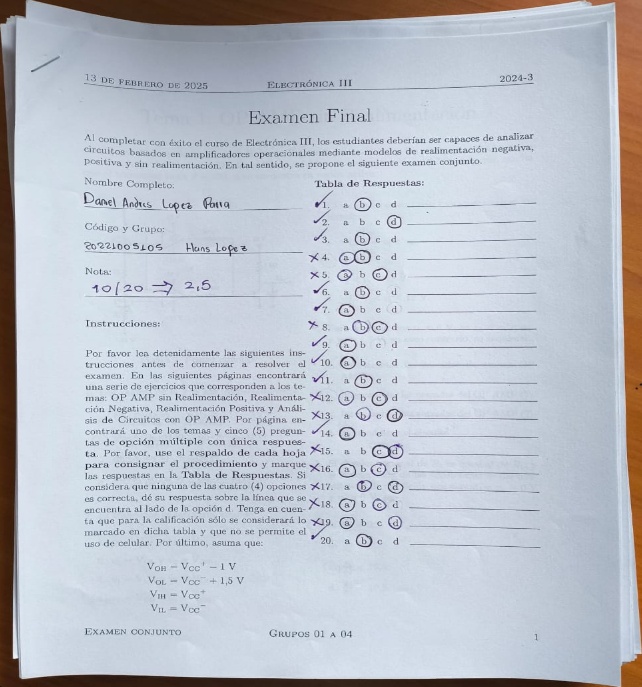 13 DE FEBRERO DE 2025 ELECTRÓNICA III 2024-3
Examen Final
Al completar con éxito el curso de Electrónica III, los estudiantes deberían ser capaces de analizar
circuitos basados en amplificadores operacionales mediante modelos de realimentación negativa,
positiva y sin realimentación. En tal sentido, se propone el siguiente examen conjunto.
Nombre Completo:
Daniel Andres Lopez Parra
Código y Grupo:
20221005105 Hans Lopez
Nota:
10/20 ⇒ 2,5
Instrucciones:
Por favor lea detenidamente las siguientes ins-
trucciones antes de comenzar a resolver el
examen. En las siguientes páginas encontrará
una serie de ejercicios que corresponden a los te-
mas: OP AMP sin Realimentación, Realimenta-
ción Negativa, Realimentación Positiva y Análi-
sis de Circuitos con OP AMP. Por página en-
contrará uno de los temas y cinco (5) pregun-
tas de opción múltiple con única respues-
ta. Por favor, use el respaldo de cada hoja
para consignar el procedimiento y marque
las respuestas en la Tabla de Respuestas. Si
considera que ninguna de las cuatro (4) opciones
es correcta, dé su respuesta sobre la línea que se
encuentra al lado de la opción d. Tenga en cuen-
ta que para la calificación sólo se considerará lo
marcado en dicha tabla y que no se permite el
uso de celular. Por último, asuma que:
V_OH = V_CC⁺ − 1 V
V_OL = V_CC⁻ + 1,5 V
V_IH = V_CC⁺
V_IL = V_CC⁻
Tabla de Respuestas:
✓1. a b c d
✓2. a b c d
✓3. a b c d
×4. a b c d
×5. a b c d
✓6. a b c d
✓7. a b c d
×8. a b c d
✓9. a b c d
✓10. a b c d
✓11. a b c d
×12. a b c d
×13. a b c d
✓14. a b c d
×15. a b c d
×16. a b c d
×17. a b c d
×18. a b c d
×19. a b c d
✓20. a b c d
EXAMEN CONJUNTO GRUPOS 01 A 04 1